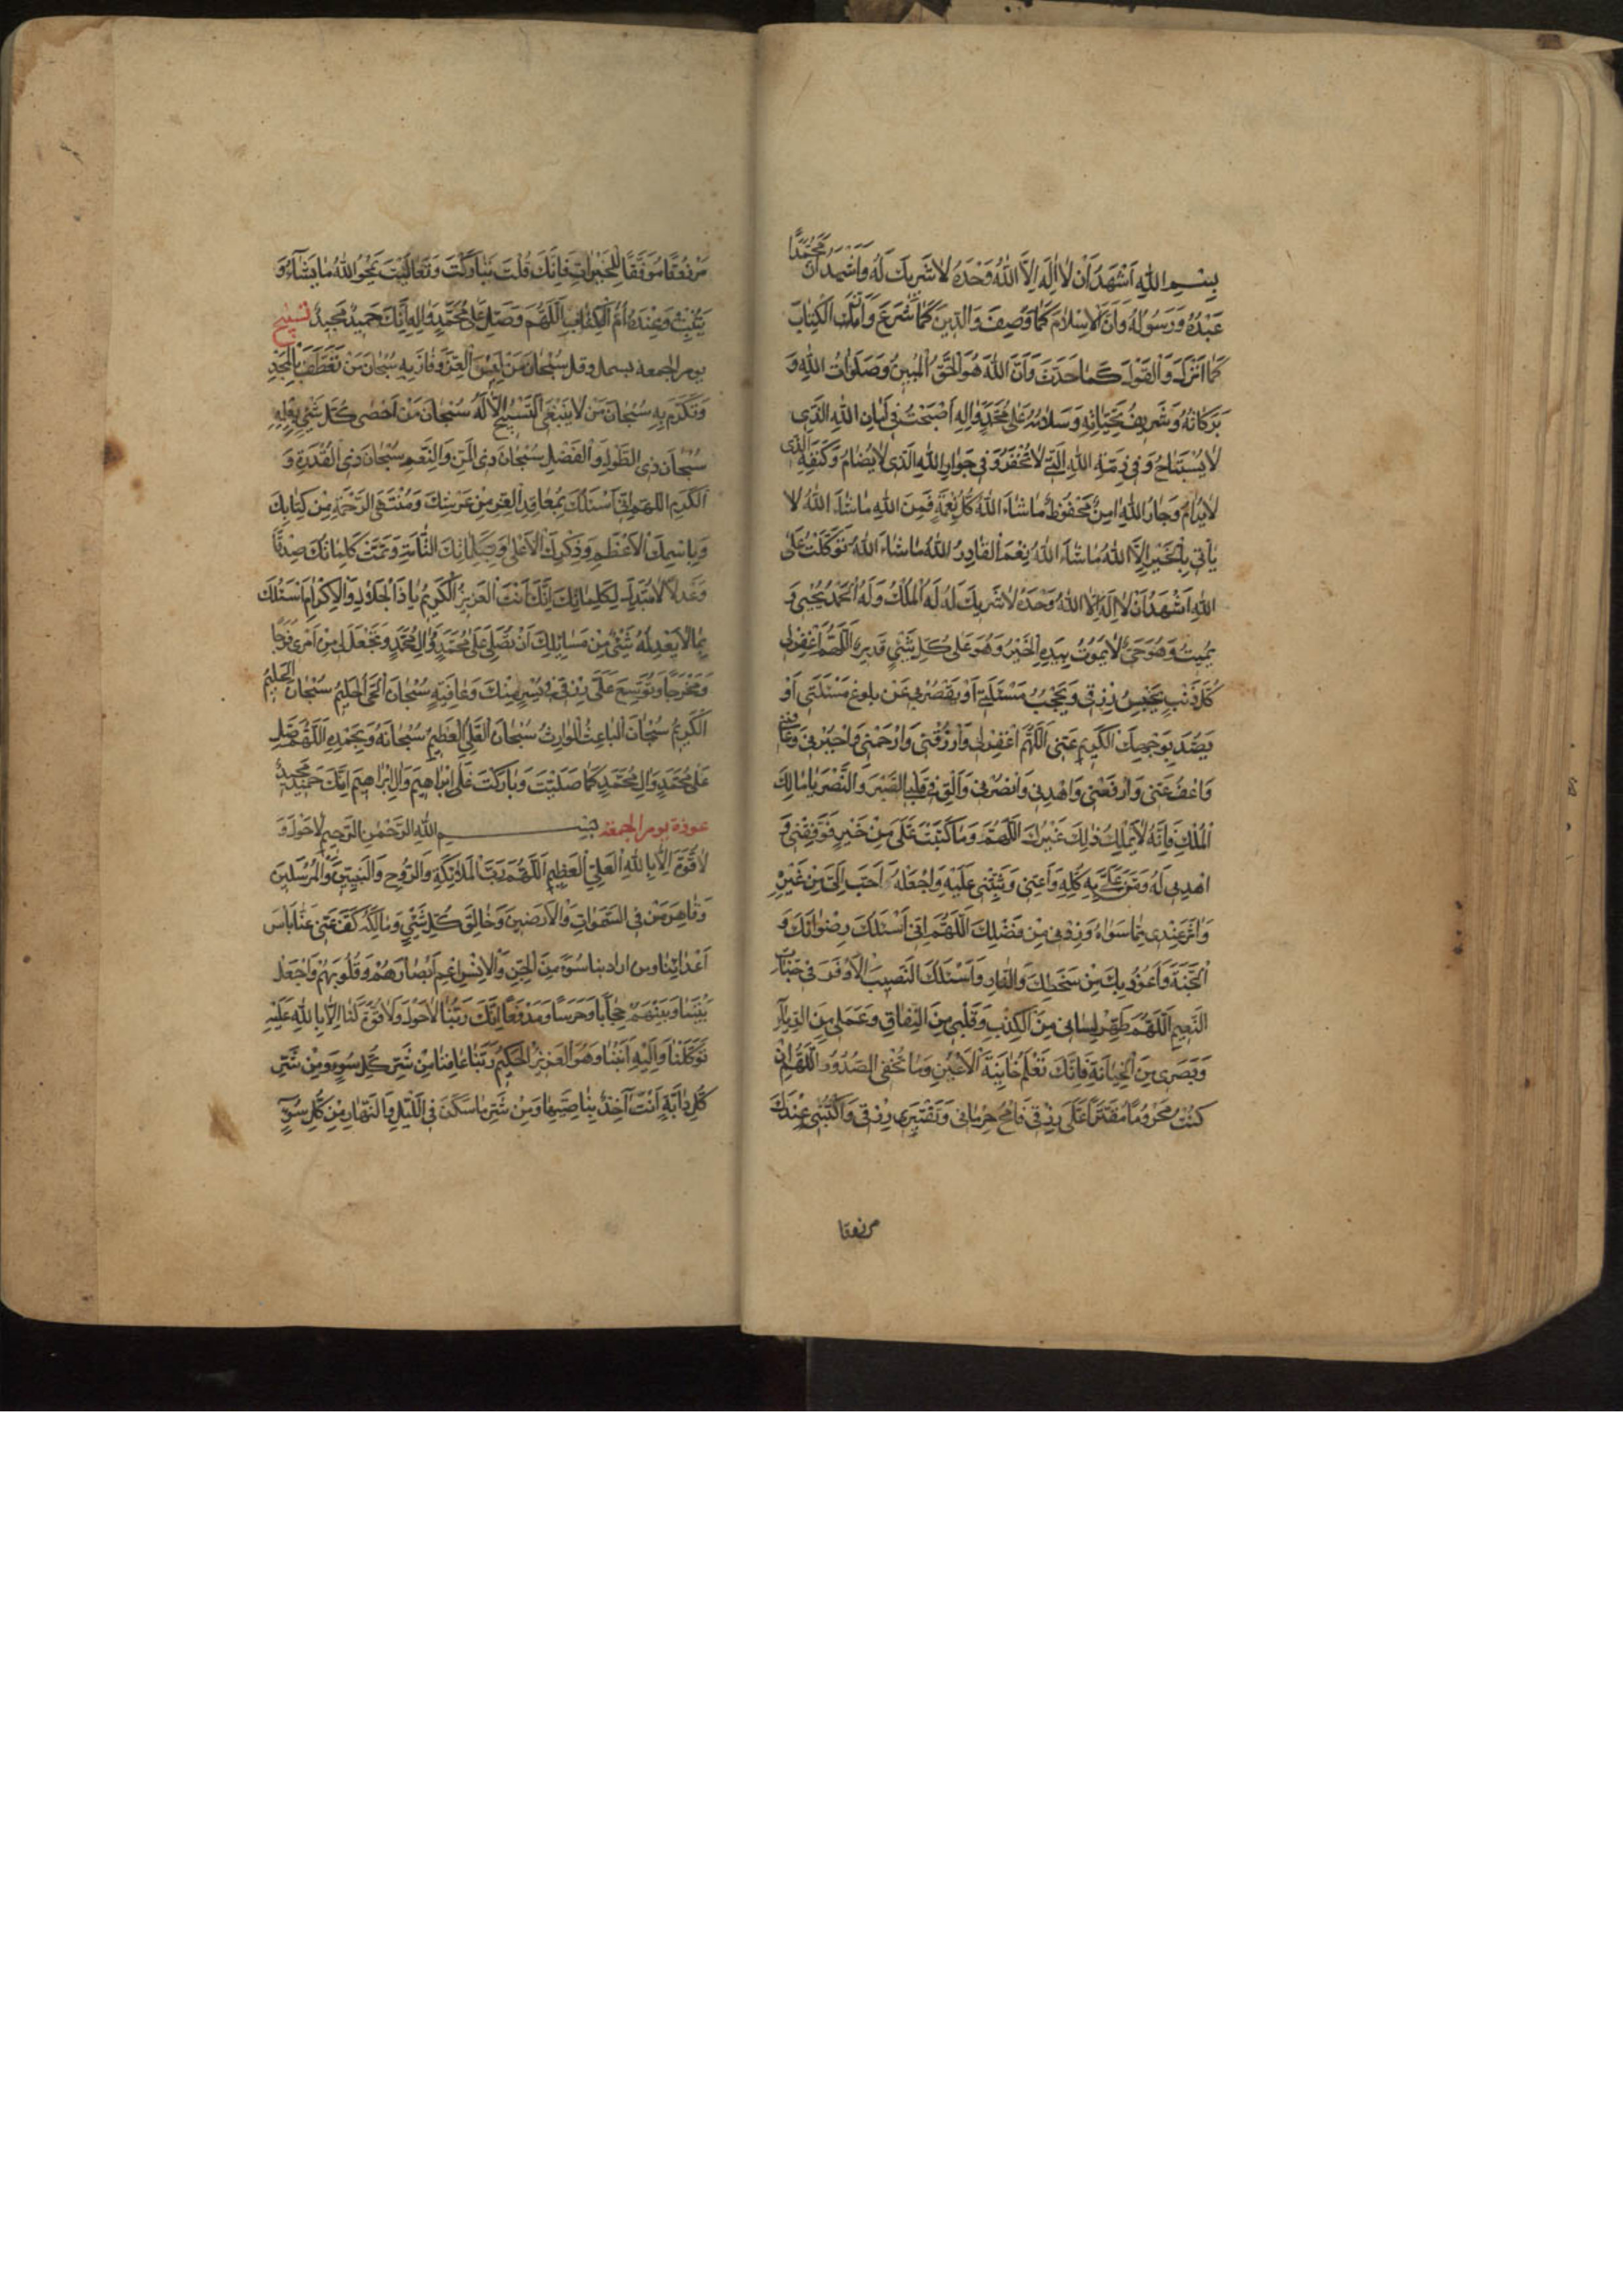 بِسْمِ اللهِ اَشْهَدُ اَنْ لا اِلهَ اِلاَّ اللهُ وَحْدَهُ لا شَرِيكَ لَهُ وَاَشْهَدُ اَنَّ مُحَمَّدًا
عَبْدُهُ وَرَسُولُهُ وَاَنَّ الاِسْلامَ كَمَا وَصَفَ وَالدِّينَ كَمَا شَرَعَ وَاَنَّ الْكِتابَ
كَمَا اَنْزَلَ وَالْقَوْلَ كَمَا حَدَّثَ وَاَنَّ اللهَ هُوَ الْحَقُّ الْمُبِينُ وَصَلَواتُ اللهِ وَ
بَرَكاتُهُ وَشَرِيفُ تَحِيَّاتِهِ وَسَلامُهُ عَلى مُحَمَّدٍ وَالِهِ اَصْبَحْتُ فِي اَمانِ اللهِ الَّذِي
لا يُسْتَباحُ وَفِي ذِمَّةِ اللهِ الَّتِي لا تُخْفَرُ وَفِي جِوارِ اللهِ الَّذِي لا يُضامُ وَكَنَفِهِ الَّذِي
لا يُرامُ وَجارُ اللهِ امِنٌ مَحْفُوظٌ ما شاءَ اللهُ كُلُّ نِعْمَةٍ فَمِنَ اللهِ ما شاءَ اللهُ لا
يَأتِي بِالْخَيْرِ اِلاَّ اللهُ ما شاءَ اللهُ نِعْمَ الْقادِرُ اللهُ ما شاءَ اللهُ تَوَكَّلْتُ عَلَى
اللهِ اَشْهَدُ اَنْ لا اِلهَ اِلاَّ اللهُ وَحْدَهُ لا شَرِيكَ لَهُ لَهُ الْمُلْكُ وَلَهُ الْحَمْدُ يُحْيِي وَ
يُمِيتُ وَهُوَ حَيٌّ لا يَمُوتُ بِيَدِهِ الْخَيْرُ وَهُوَ عَلى كُلِّ شَيْءٍ قَدِيرٌ اَللّهُمَّ اغْفِرْ لِي
كُلَّ ذَنْبٍ يَحْبِسُ رِزْقِي وَيَحْجُبُ مَسْئَلَتِي اَوْ يَقْصُرُ بِي عَنْ بُلُوغِ مَسْئَلَتِي اَوْ
يَصُدُّ بِوَجْهِكَ الْكَرِيمِ عَنِّي اَللّهُمَّ اغْفِرْ لِي وَارْزُقْنِي وَارْحَمْنِي وَاجْبُرْنِي وَعافِنِي
وَاعْفُ عَنِّي وَارْفَعْنِي وَاهْدِنِي وَانْصُرْنِي وَاَلْقِ فِي قَلْبِي الصَّبْرَ وَالنَّصْرَ يا مالِكَ
الْمُلْكِ فَاِنَّهُ لا يَمْلِكُ ذلِكَ غَيْرُكَ اَللّهُمَّ وَما كَتَبْتَ عَلَيَّ مِنْ خَيْرٍ فَوَفِّقْنِي وَ
اهْدِنِي لَهُ وَمُنَّ عَلَيَّ بِهِ كُلِّهِ وَاَعِنِّي وَثَبِّتْنِي عَلَيْهِ وَاجْعَلْهُ اَحَبَّ اِلَيَّ مِنْ غَيْرِهِ
وَاثَرَ عِنْدِي مِمَّا سِواهُ وَزِدْنِي مِنْ فَضْلِكَ اَللّهُمَّ اِنِّي اَسْئَلُكَ رِضْوانَكَ وَ
الْجَنَّةَ وَاَعُوذُ بِكَ مِنْ سَخَطِكَ وَالنَّارِ وَاَسْئَلُكَ النَّصِيبَ الاَوْفَرَ فِي جَنَّاتِ
النَّعِيمِ اَللّهُمَّ طَهِّرْ لِسانِي مِنَ الْكِذْبِ وَقَلْبِي مِنَ النِّفاقِ وَعَمَلِي مِنَ الرِّياءِ
وَبَصَرِي مِنَ الْخِيانَةِ فَاِنَّكَ تَعْلَمُ خائِنَةَ الاَعْيُنِ وَما تُخْفِي الصُّدُورُ اَللّهُمَّ اِنْ
كُنْتُ مَحْرُومًا مُقَتَّرًا عَلَيَّ رِزْقِي فَامْحُ حِرْمانِي وَتَقْتِيرَ رِزْقِي وَاكْتُبْنِي عِنْدَكَ
مرزوقا
مَرْزُوقًا مُوَفَّقًا لِلْخَيْراتِ فَاِنَّكَ قُلْتَ تَبارَكْتَ وَتَعالَيْتَ يَمْحُو اللهُ ما يَشاءُ وَ
يُثْبِتُ وَعِنْدَهُ اُمُّ الْكِتابِ اَللّهُمَّ وَصَلِّ عَلى مُحَمَّدٍ وَالِهِ اِنَّكَ حَمِيدٌ مَجِيدٌ تسبيح
يوم الجمعة بسمله وقل سُبْحانَ مَنْ لَبِسَ الْعِزَّ وَفازَ بِهِ سُبْحانَ مَنْ تَعَطَّفَ بِالْمَجْدِ
وَتَكَرَّمَ بِهِ سُبْحانَ مَنْ لا يَنْبَغِي التَّسْبِيحُ اِلاَّ لَهُ سُبْحانَ مَنْ اَحْصى كُلَّ شَيْءٍ بِعِلْمِهِ
سُبْحانَ ذِي الطَّوْلِ وَالْفَضْلِ سُبْحانَ ذِي الْمَنِّ وَالنِّعَمِ سُبْحانَ ذِي الْقُدْرَةِ وَ
الْكَرَمِ اللهم اِنِّي اَسْئَلُكَ بِمَعاقِدِ الْعِزِّ مِنْ عَرْشِكَ وَمُنْتَهَى الرَّحْمَةِ مِنْ كِتابِكَ
وَبِاسْمِكَ الاَعْظَمِ وَذِكْرِكَ الاَعْلى وَبِكَلِماتِكَ التَّامَّةِ وَتَمَّتْ كَلِماتُكَ صِدْقًا
وَعَدْلاً لا مُبَدِّلَ لِكَلِماتِكَ اِنَّكَ اَنْتَ الْعَزِيزُ الْكَرِيمُ يا ذَا الْجَلالِ وَالاِكْرامِ اَسْئَلُكَ
بِما لا يَعْدِلُهُ شَيْءٌ مِنْ مَسائِلِكَ اَنْ تُصَلِّيَ عَلى مُحَمَّدٍ وَالِ مُحَمَّدٍ وَتَجْعَلَ لِي مِنْ اَمْرِي فَرَجًا
وَمَخْرَجًا وَتُوَسِّعَ عَلَيَّ رِزْقِي فِي يُسْرٍ مِنْكَ وَعافِيَةٍ سُبْحانَ الْحَيِّ الْحَلِيمِ سُبْحانَ الْحَلِيمِ
الْكَرِيمِ سُبْحانَ الْباعِثِ الْوارِثِ سُبْحانَ الْعَلِيِّ الْعَظِيمِ سُبْحانَهُ وَبِحَمْدِهِ اَللّهُمَّ صَلِّ
عَلى مُحَمَّدٍ وَالِ مُحَمَّدٍ كَما صَلَّيْتَ وَبارَكْتَ عَلى اِبْراهِيمَ وَالِ اِبْراهِيمَ اِنَّكَ حَمِيدٌ مَجِيدٌ
عوذة يوم الجمعة بِسْمِ اللهِ الرَّحْمنِ الرَّحِيمِ لا حَوْلَ وَ
لا قُوَّةَ اِلاَّ بِاللهِ الْعَلِيِّ الْعَظِيمِ اَللّهُمَّ رَبَّ الْمَلائِكَةِ وَالرُّوحِ وَالنَّبِيِّينَ وَالْمُرْسَلِينَ
وَقاهِرَ مَنْ فِي السَّمواتِ وَالاَرَضِينَ وَخالِقَ كُلِّ شَيْءٍ وَمالِكَهُ كُفَّ عَنِّي عَنَّا بَأسَ
اَعْدائِنا ومن اراد بنا سُوءً مِنَ الْجِنِّ وَالاِنْسِ اعْمِ اَبْصارَهُمْ وَقُلُوبَهُمْ وَاجْعَلْ
بَيْنَنا وَبَيْنَهُمْ حِجابًا وَحَرَسًا وَمَدْفَعًا اِنَّكَ رَبُّنا لا حَوْلَ وَلا قُوَّةَ لَنا اِلاَّ بِاللهِ عَلَيْهِ
تَوَكَّلْنا وَاِلَيْهِ اَنَبْنا وَهُوَ الْعَزِيزُ الْحَكِيمُ رَبَّنا عافِنا مِنْ شَرِّ كُلِّ سُوءٍ وَمِنْ شَرِّ
كُلِّ دابَّةٍ اَنْتَ آخِذٌ بِناصِيَتِها وَمِنْ شَرِّ ما سَكَنَ فِي اللَّيْلِ وَالنَّهارِ مِنْ كُلِّ سُوءٍ